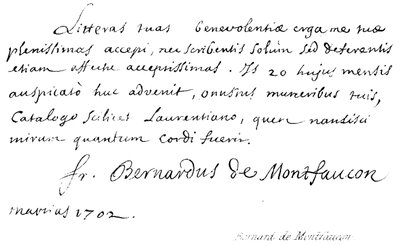 Litteras tuas benevolentiæ erga me tuæ
plenissimas accepi, nec scribentis solùm sed deferentis
etiam affectu acceptissimas. Is 20 hujus mensis
auspicatò huc advenit, onustus muneribus tuis,
Catalogo scilicet Laurentiano, quem nancisci
mirum quantum cordi fuerit.
fr. Bernardus de Montfaucon
martias 1702.
Bernard de Montfaucon